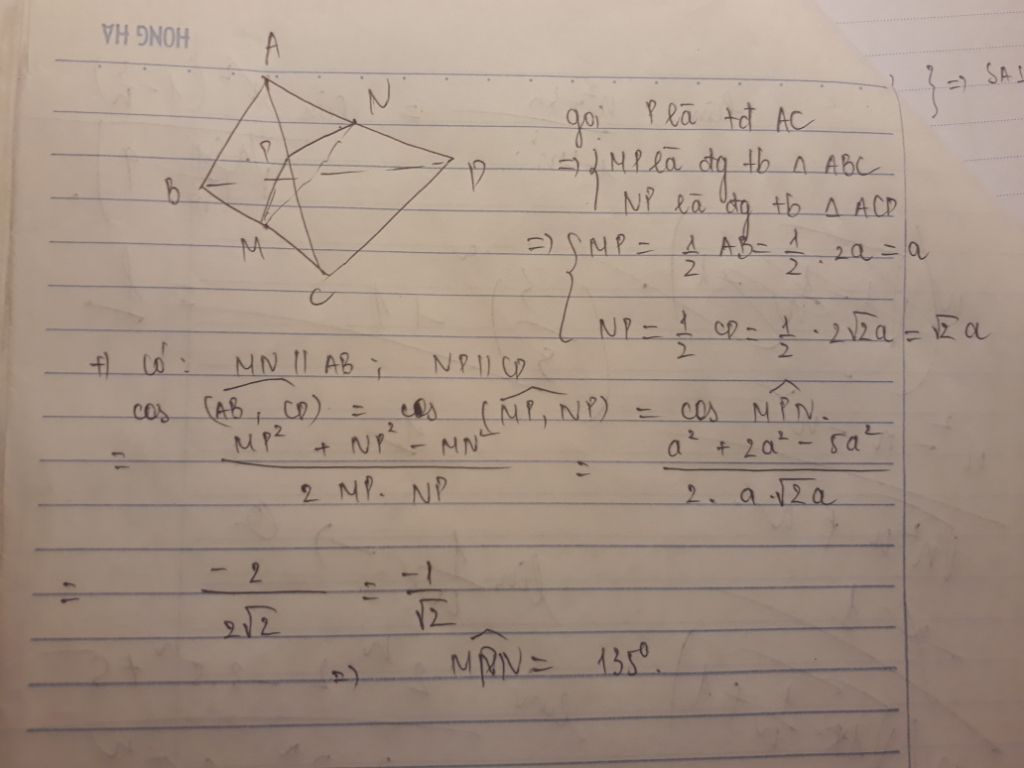 HONG HA
A
N
P
B
D
M
C
} => SA⊥
gọi P là tđ AC
=> { MP là đg tb Δ ABC
NP là đg tb Δ ACD
=> { MP = 1/2 AB = 1/2 . 2a = a
NP = 1/2 CD = 1/2 . 2√2a = √2 a
+) Có: MN // AB ; NP // CD
cos (AB, CD) = cos (MP, NP) = cos MPN.
= (MP² + NP² - MN²) / (2 MP. NP) = (a² + 2a² - 5a²) / (2. a.√2a)
= -2 / 2√2 = -1 / √2
=> MPN = 135⁰.